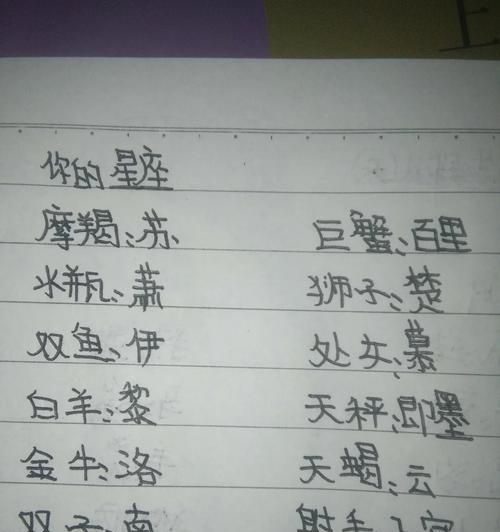 你的星座
摩羯:苏 巨蟹:百里
水瓶:萧 狮子:楚
双鱼:伊 处女:慕
白羊:黎 天秤:即墨
金牛:洛 天蝎:云
双子:南 射手: